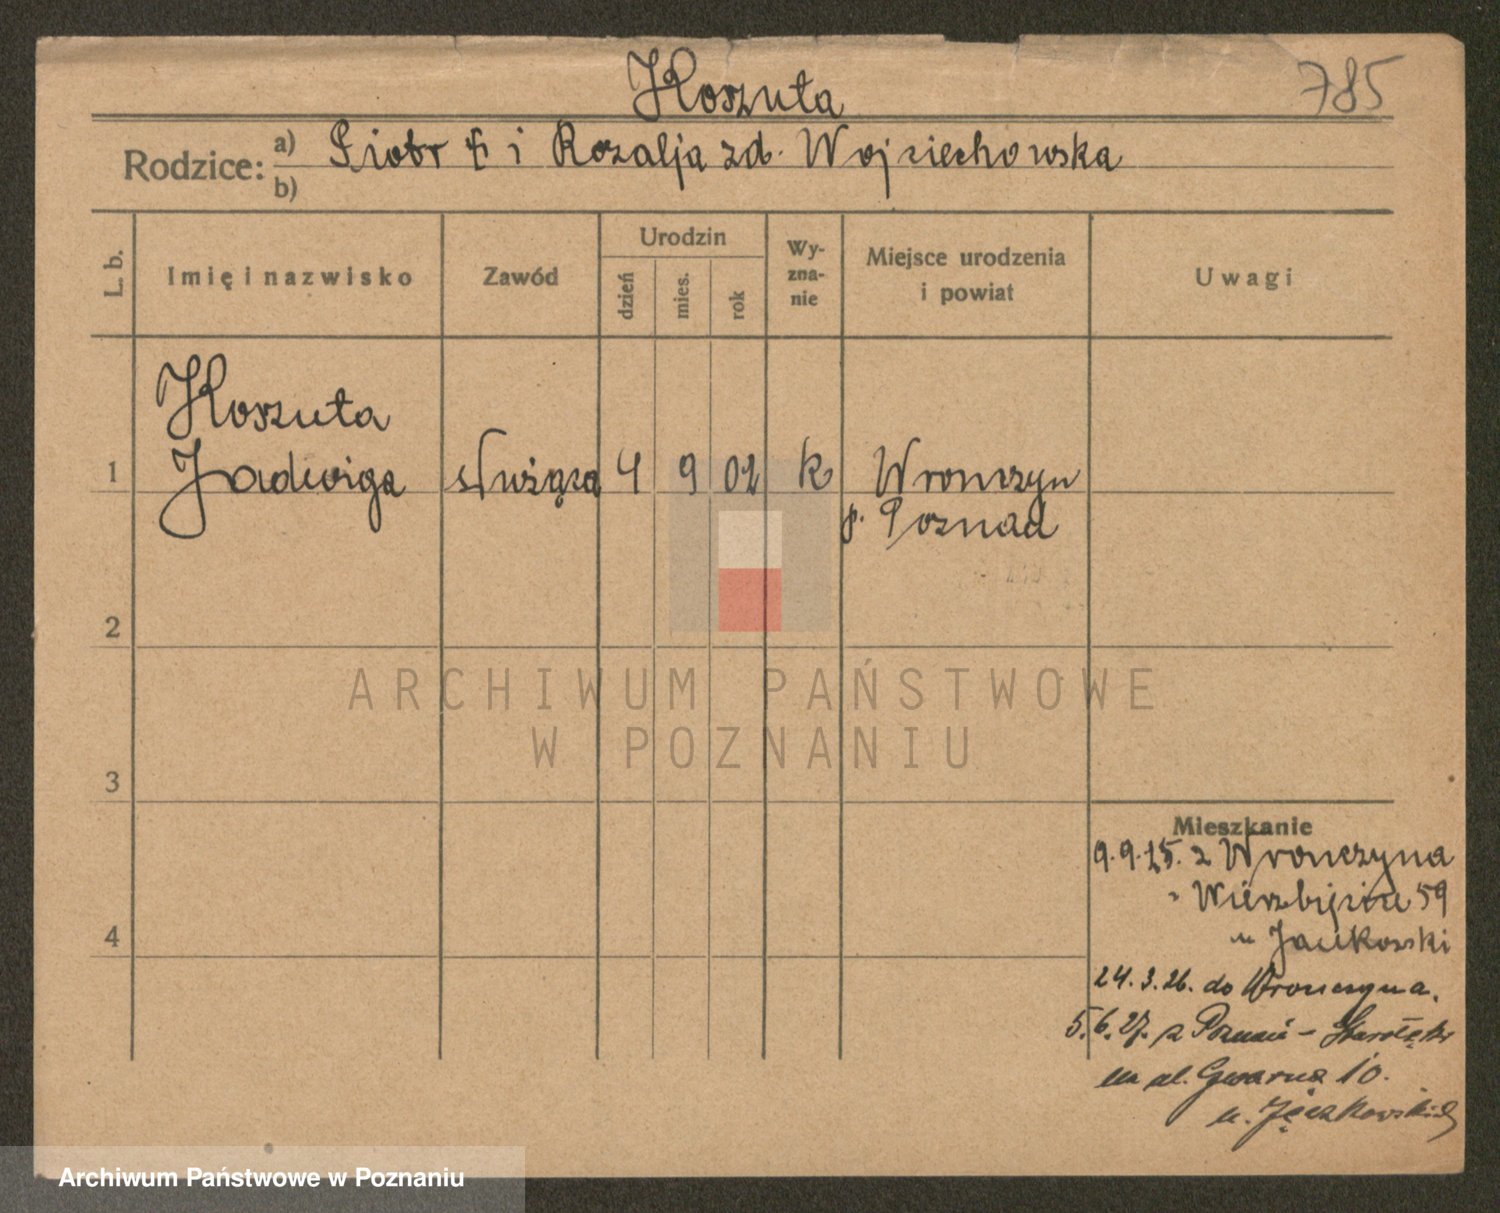 Koszuta
785
Rodzice: a) Piotr i Rozalja zd. Wojciechowska
b)
L. b.
Imię i nazwisko
Zawód
Urodzin
dzień
mies.
rok
Wy-
zna-
nie
Miejsce urodzenia
i powiat
Uwagi
Koszuta
1 Jadwiga służąca 4 9 02 k Wronczyn
p. Poznań
2
ARCHIWUM PAŃSTWOWE
W POZNANIU
3
Mieszkanie
9.9.25. z Wronczyna
Wierzbięcice 59
4
24.3.26. do Wronczyna.
5.6.27. z Poznań – Starołęka
na ul. Gwarna 10.
Archiwum Państwowe w Poznaniu